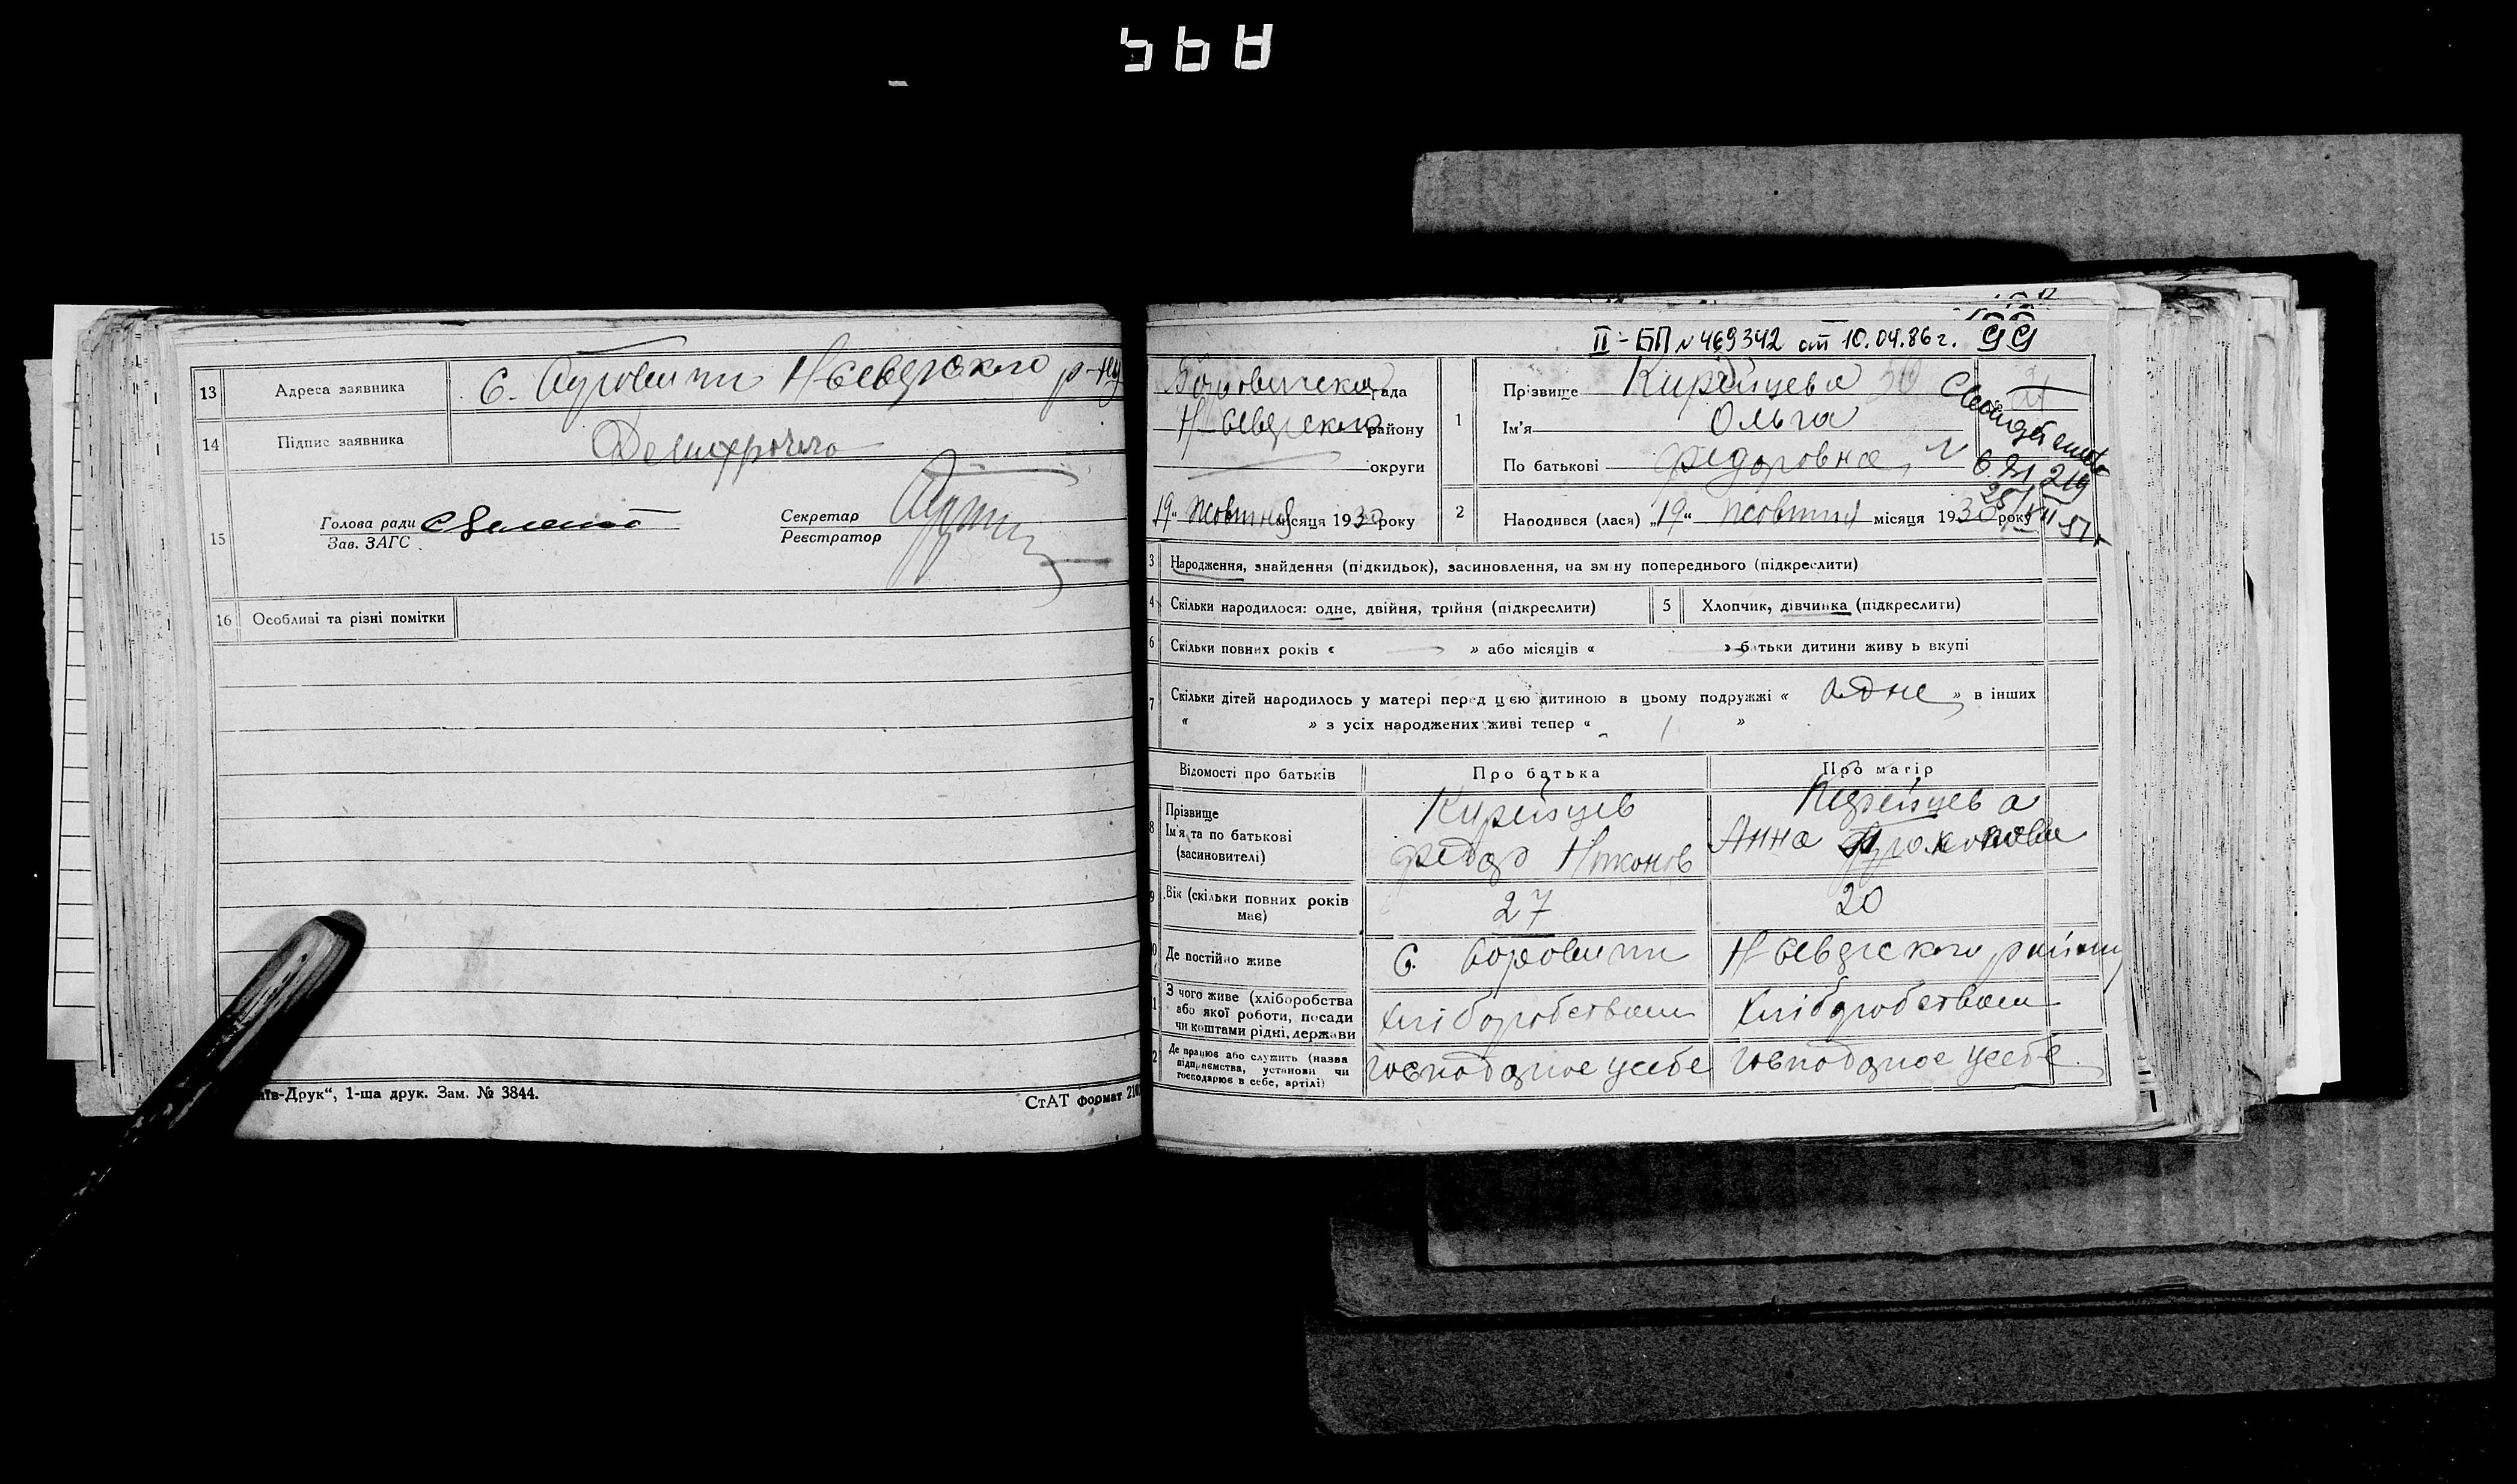 II-БП N 469342 от 10.04.86 г. 99
13 Адреса заявника с. Н-Сіверского р-ну
14 Підпис заявника
15 Голова ради
Зав. ЗАГС
Секретар
Реєстратор
16 Особливі та різні помітки
"Київ-Друк", 1-ша друк. Зам. № 3844.
СтАТ формат 210
рада
Н-Сіверского району
округи
„19“ жовтня місяця 1930 року
1 Прізвище Кирейцева
Ім'я Ольга
По батькові Федоровна
Свидетельство
2 Народився (лася) „19“ жовтня місяця 1930 року
3 Народження, знайдення (підкидьок), засиновлення, на зміну попереднього (підкреслити)
4 Скільки народилося: одне, двійня, трійня (підкреслити)
5 Хлопчик, дівчинка (підкреслити)
6 Скільки повних років « — » або місяців « — » батьки дитини живуть вкупі
7 Скільки дітей народилось у матері перед цією дитиною в цьому подружжі « одне » в інших
« » з усіх народжених живі тепер « 1 »
Відомості про батьків Про батька Про матір
8 Прізвище Кирейцев Кирейцева
Ім'я та по батькові Федор Никонов Анна Прокопова
(засиновителі)
9 Вік (скільки повних років має) 27 20
10 Де постійно живе с. Боровичи Н-Сіверского району
11 З чого живе (хліборобства або якої роботи, посади чи коштами рідні, держави хліборобством хліборобством
12 Де працює або служить (назва підприємства, установи чи господарює в себе, артілі) господарює у себе господарює у себе